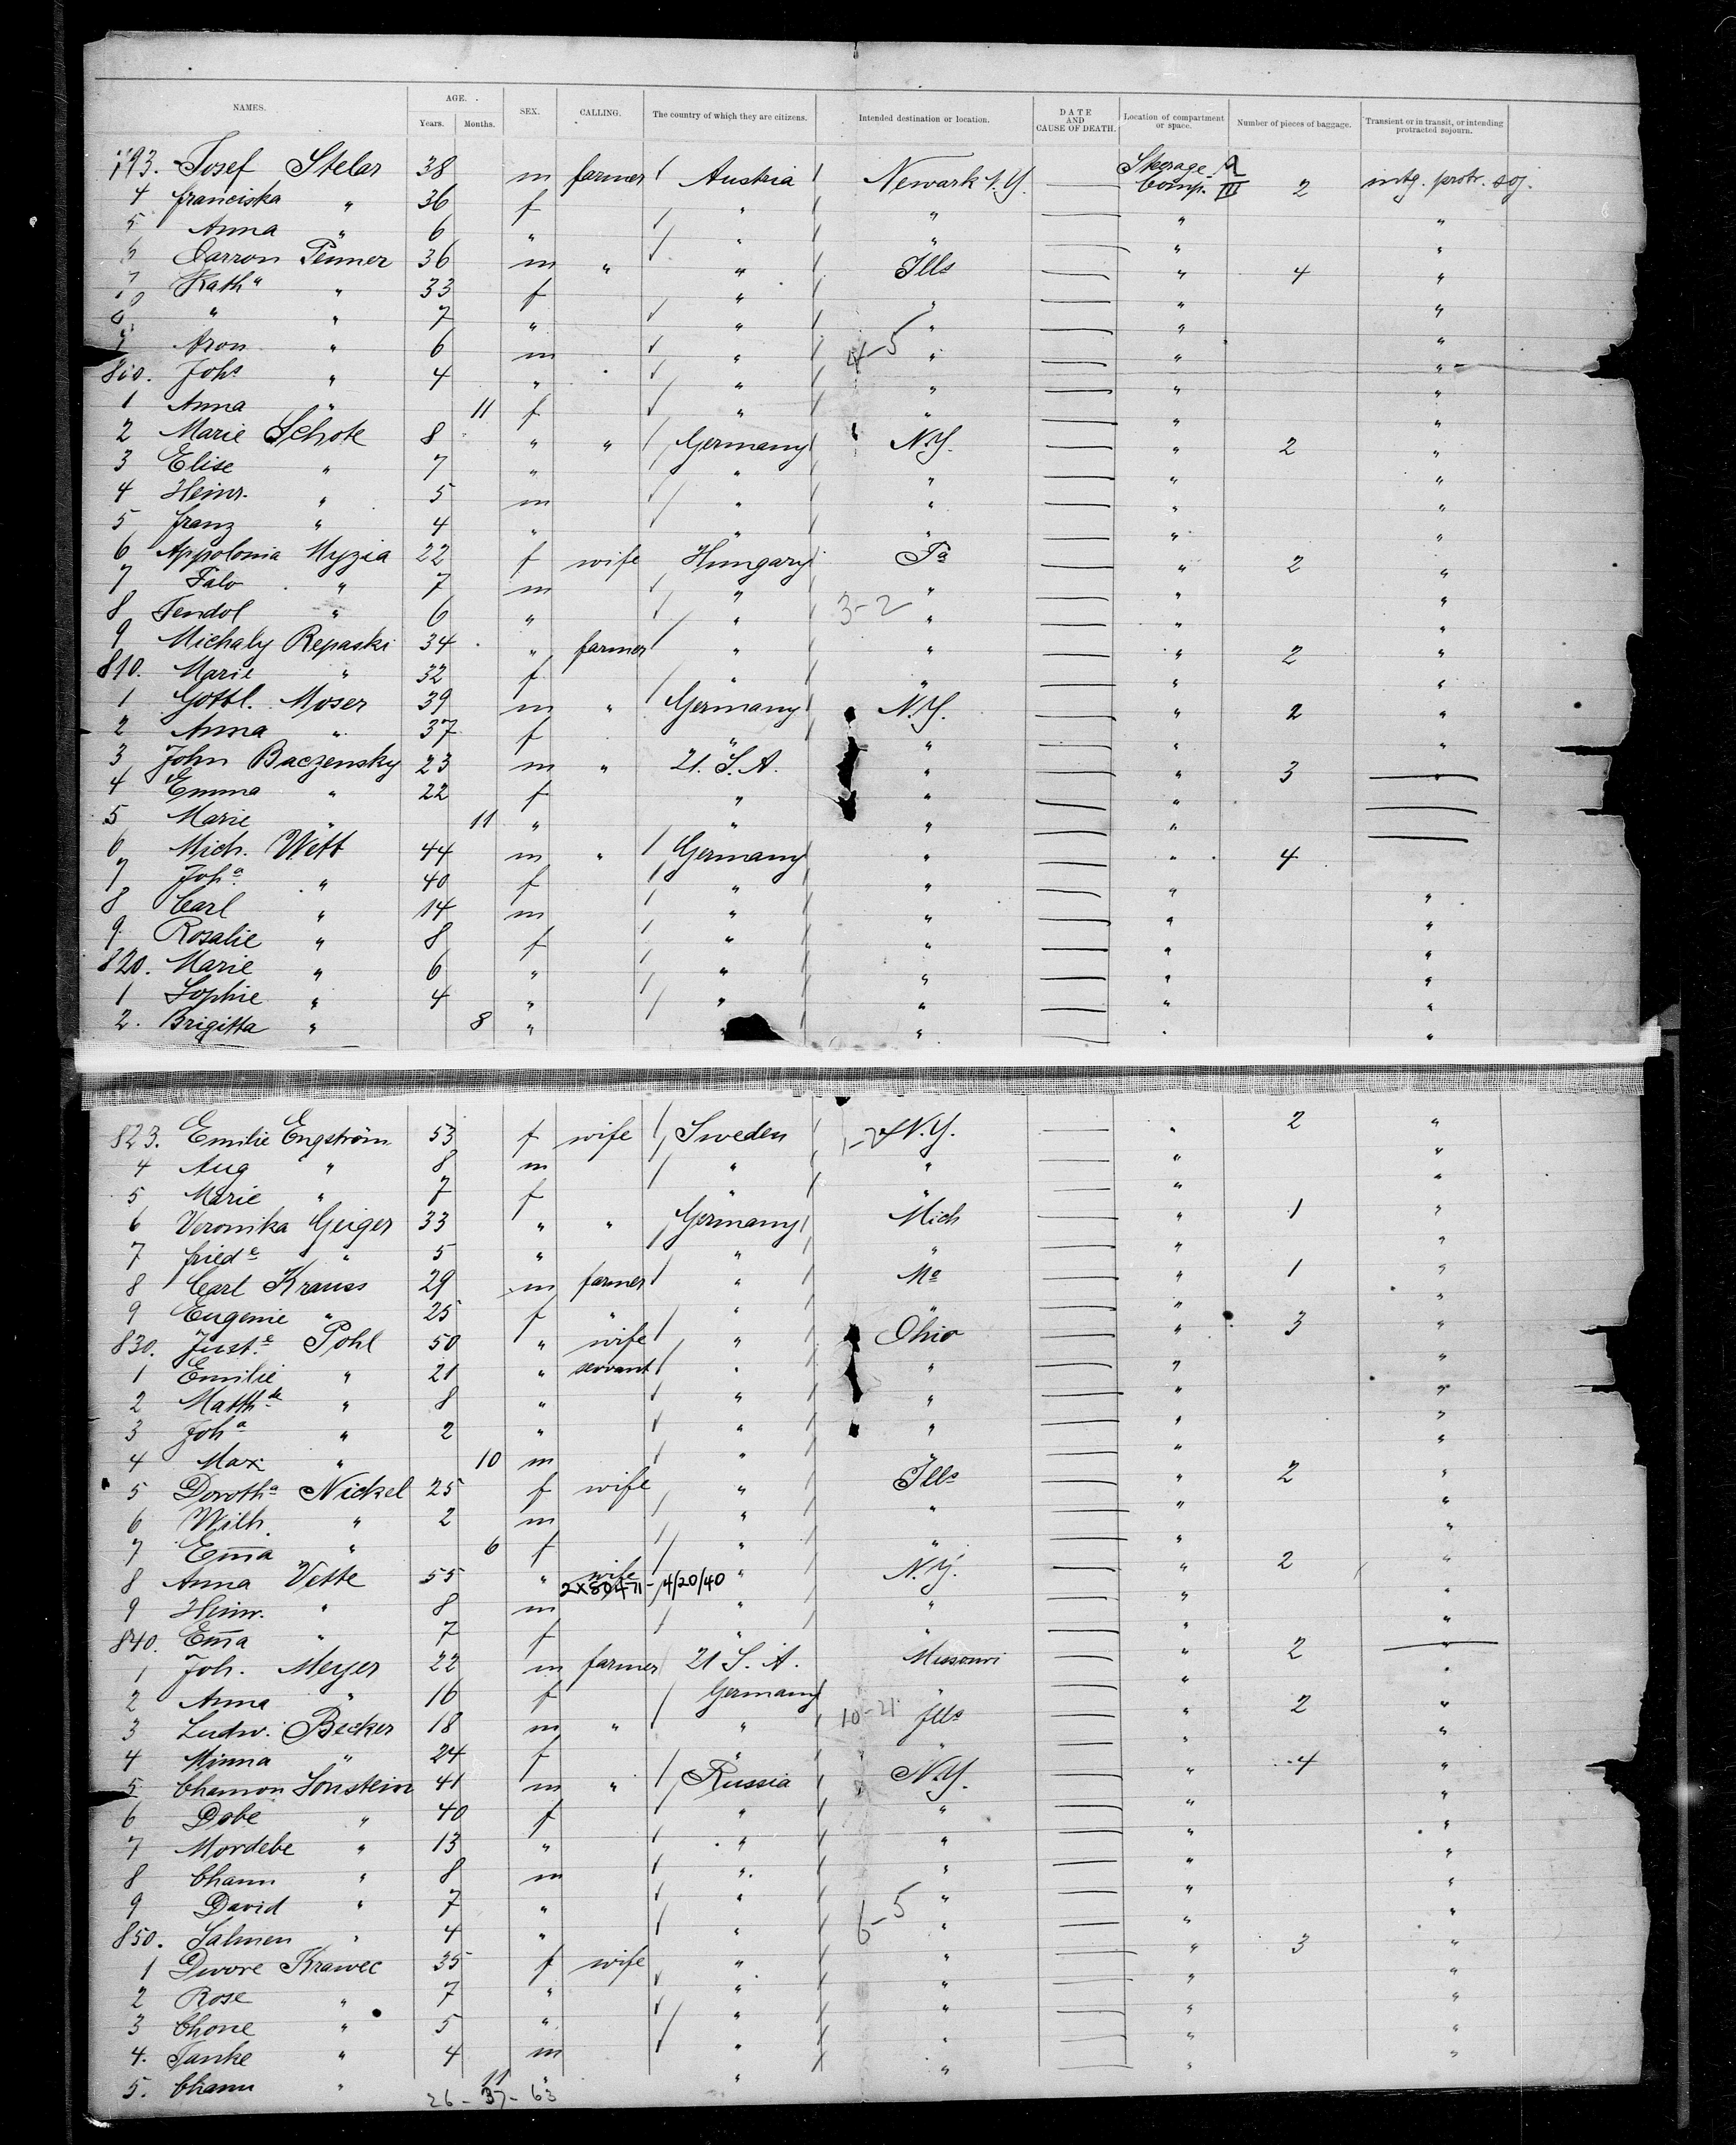 NAMES. AGE. Years. Months. SEX. CALLING. The country of which they are citizens. Intended destination or location. DATE AND CAUSE OF DEATH. Location of compartment or space. Number of pieces of baggage. Transient or in transit, or intending protracted sojourn.
793. Josef Stelar 38 m farmer Austria Newark N.Y. Steerage Comp. III 2 intg. protr. soj.
4 franciska " 36 f " " " "
5 Anna " 6 " " " " "
6 Aarron Penner 36 m " " Ills " 4 "
7 Kath" " 33 f " " " "
" " 7 " " " " "
Aron " 6 m " " " "
800. Johs " 4 " " " " "
1 Anna " 11 f " " " "
2 Marie Schote 8 " " Germany N.Y. " 2 "
3 Elise " 7 " " " " "
4 Heinr. " 5 m " " " "
5 franz " 4 " " " " "
6 Appolonia Myzia 22 f wife Hungary Pa " 2 "
7 Falo " 7 m " " " "
8 Tendol " 6 " " " " "
3-2
9 Michaly Repaski 34 " farmer " " " 2 "
810. Marie " 32 f " " " "
1 Gottl. Moser 39 m " Germany N.Y. " 2 "
2 Anna " 37 f " " " "
3 John Baczensky 23 m " U.S.A. " " 3
4 Emma " 22 f " " "
5 Marie " 11 " " " "
6 Mich. Witt 44 m " Germany " " 4
7 Joha " 40 f " " " "
8 Carl " 14 m " " " "
9 Rosalie " 8 f " " " "
820. Marie " 6 " " " " "
1 Sophie " 4 " " " " "
2. Brigitta " 8 " " " " "
823. Emilie Engström 53 f wife Sweden N.Y. " 2 "
4 Aug " 8 m " " " "
5 Marie " 7 f " " " "
6 Veronika Geiger 33 " " Germany Mich " 1 "
7 friede " 5 " " " " "
8 Carl Krauss 29 m farmer " Mo " 1 "
9 Eugenie " 25 f " " " " "
830. Juste Pohl 50 " wife " Ohio " 3 "
1 Emilie " 21 " servant " " " "
2 Matthde " 8 " " " " "
3 Joha " 2 " " " " "
4 Max " 10 m " " "
5 Dorotha Nickel 25 f wife " Ills " 2 "
6 Wilh. " 2 m " " " "
7 Em̄a " 6 f " " " "
8 Anna Vette 55 " wife " N.Y. " 2 "
2X80471- 4/20/40
9 Heinr. " 8 m " " " "
840. Em̄a " 7 f " " " "
1 Joh. Meyer 22 m farmer U.S.A. Missouri " 2
2 Anna " 16 f Germany " " "
3 Ludw. Becker 18 m " " 10-21 Ills " 2 "
4 Minna " 24 f " " " "
5 Chamon Sonstein 41 m " Russia N.Y. " 4 "
6 Dobe " 40 f " " " "
7 Mordebe " 13 " " " " "
8 Chann " 8 m " " " "
9 David " 7 " " " " "
6-5
850. Salmen " 4 " " " " "
1 Dwore Krawec 35 f wife " " " 3 "
2 Rose " 7 " " " " "
3 Chone " 5 " " " " "
4. Tanke " 4 m " " " "
5. Chann " 11 " " " "
26-37-63